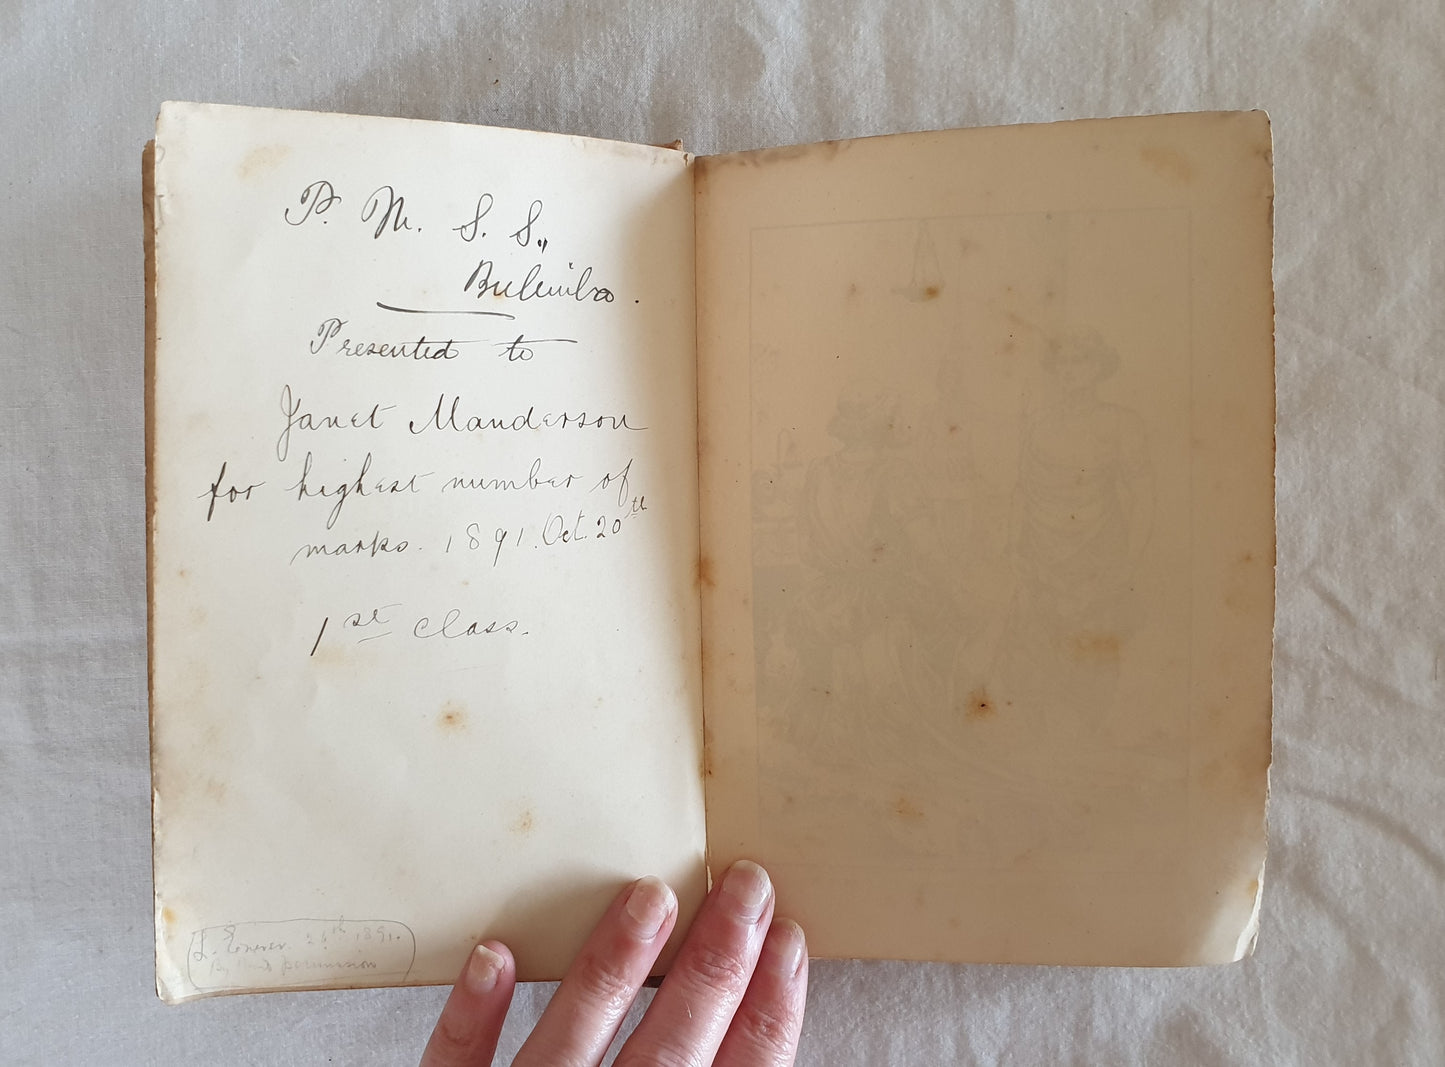 P. M. S. S.,
Bulimba.
Presented to
Janet Manderson
for highest number of
marks. 1891. Oct. 20th
1st class.
26th 1891.
By permission